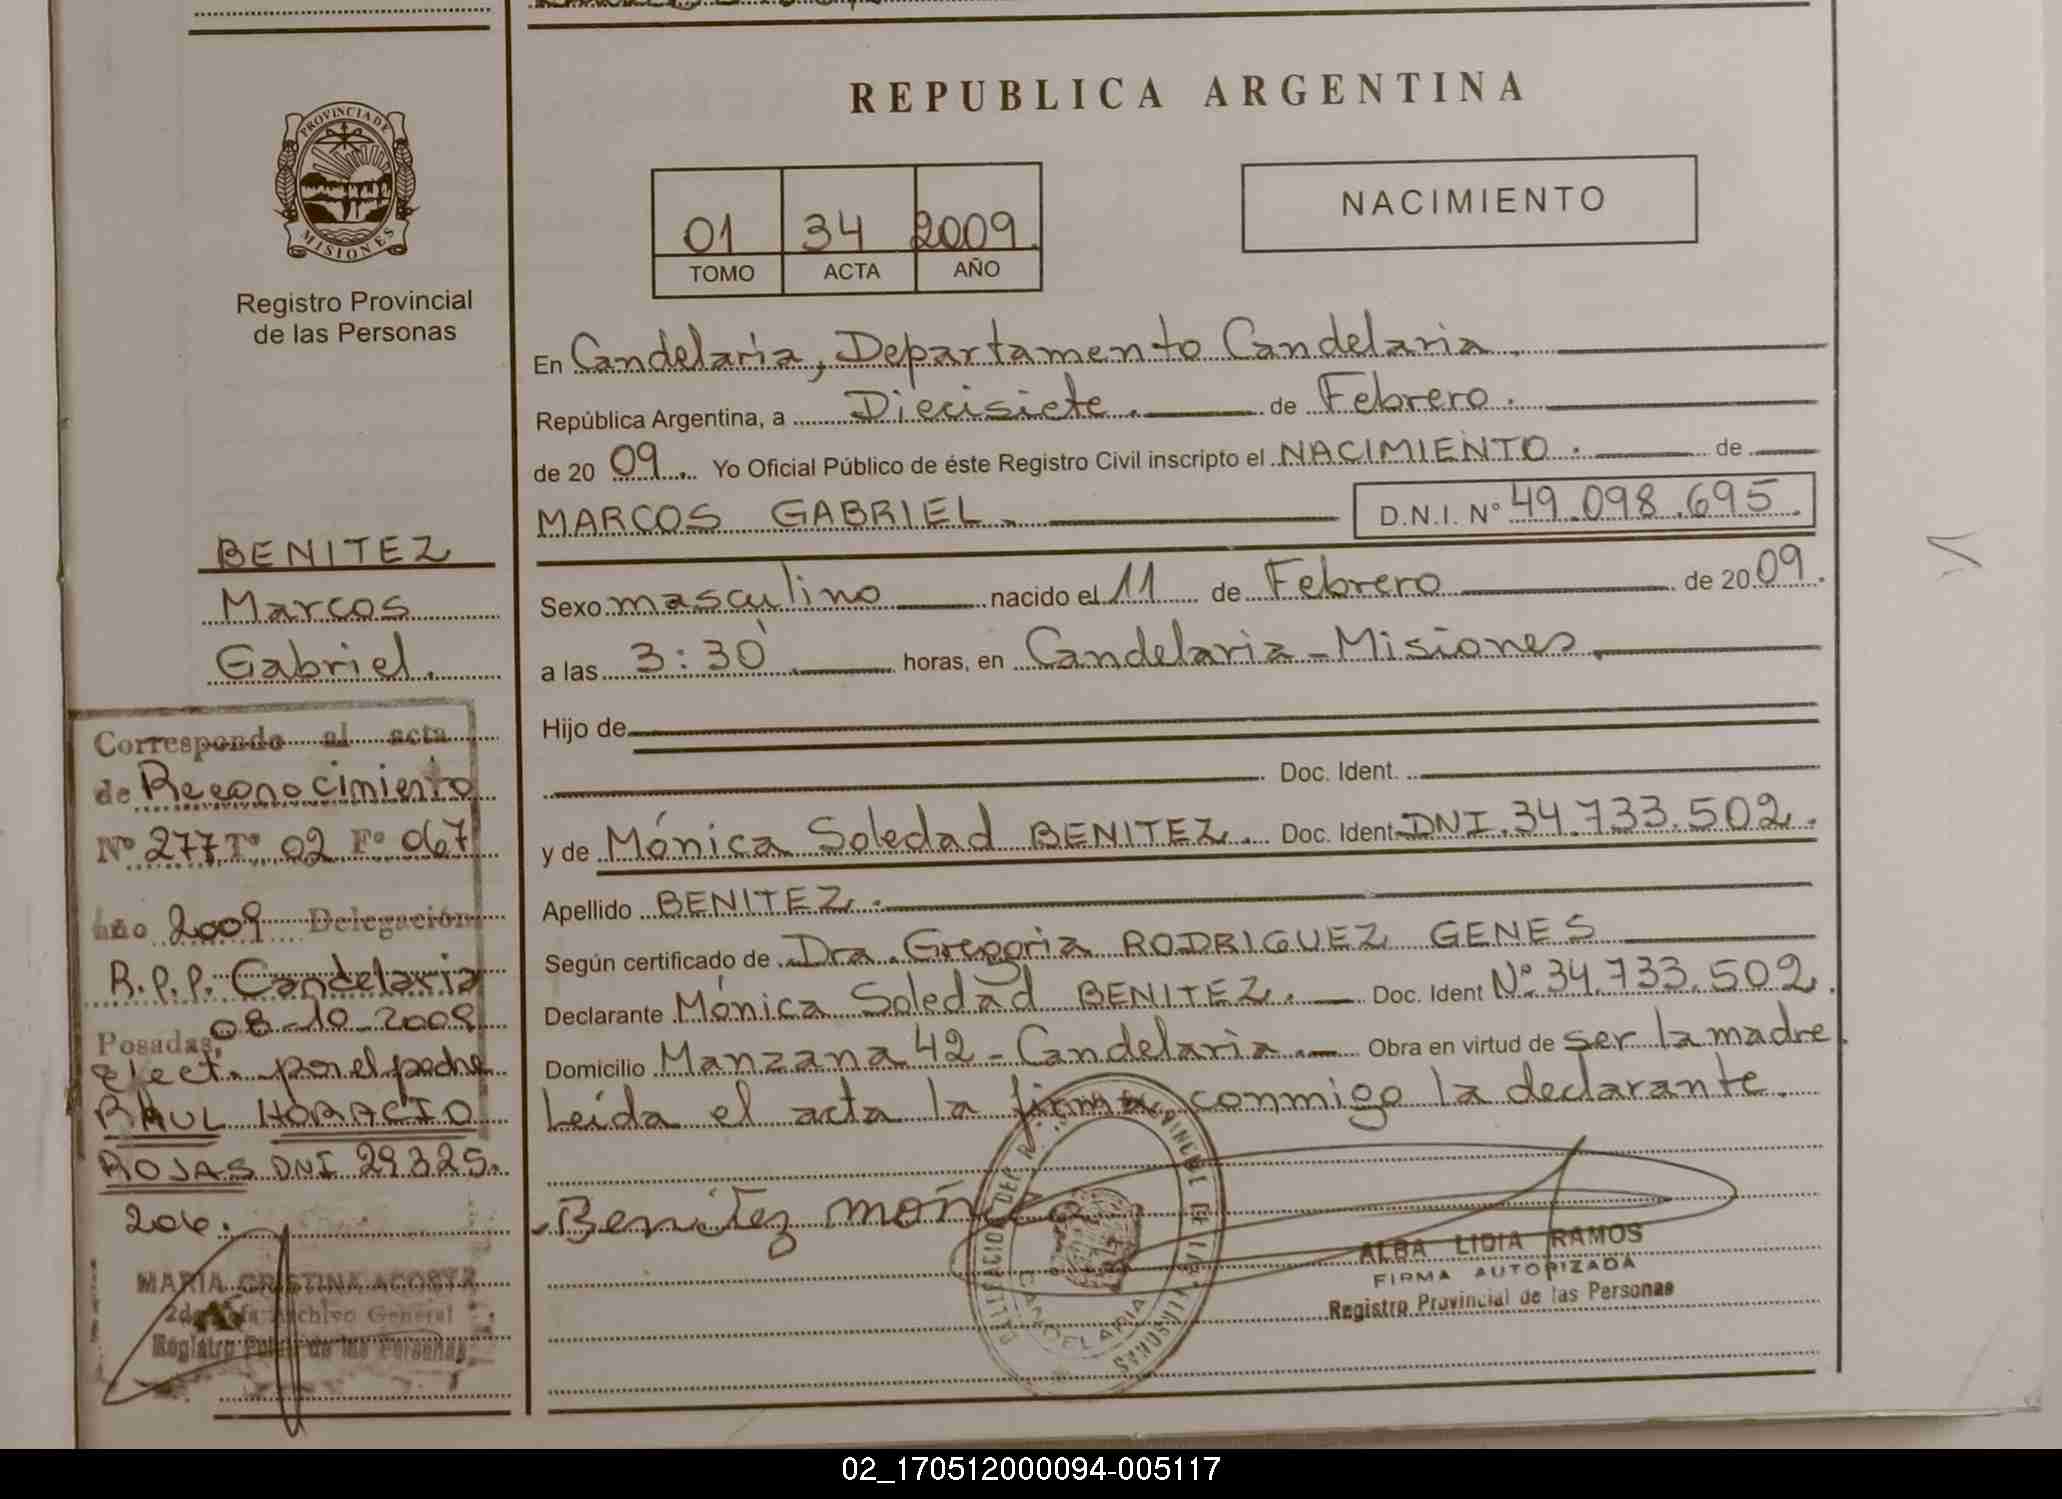 REPUBLICA ARGENTINA
PROVINCIA DE
MISIONES
Registro Provincial
de las Personas
01 34 2009
TOMO ACTA AÑO
NACIMIENTO
En Candelaria, Departamento Candelaria.
República Argentina, a Diecisiete. de Febrero.
de 20 09. Yo Oficial Público de éste Registro Civil inscripto el NACIMIENTO. de
MARCOS GABRIEL. D.N.I. Nº 49.098.695.
Sexo masculino nacido el 11 de Febrero de 2009.
a las 3:30' horas, en Candelaria-Misiones.
Hijo de
Doc. Ident.
y de Mónica Soledad BENITEZ. Doc. Ident. DNI.34.733.502.
Apellido BENITEZ.
Según certificado de Dra. Gregoria RODRIGUEZ GENES
Declarante Mónica Soledad BENITEZ. Doc. Ident Nº 34.733.502.
Domicilio Manzana 42 - Candelaria. Obra en virtud de ser la madre.
Leída el acta la firma conmigo la declarante.
Benitez monica
CANDELARIA
ALBA LIDIA RAMOS
FIRMA AUTORIZADA
Registro Provincial de las Personas
BENITEZ
Marcos
Gabriel.
Corresponde al acta
de Reconocimiento
Nº 277 Tº 02 Fº 067
año 2009 Delegación
R.P.P. Candelaria
Posadas, 08-10-2009
efect. por el padre
RAUL HORACIO
ROJAS DNI 29.325.
206.
MARIA CRISTINA ACOSTA
Archivo General
de las Personas
02_170512000094-005117